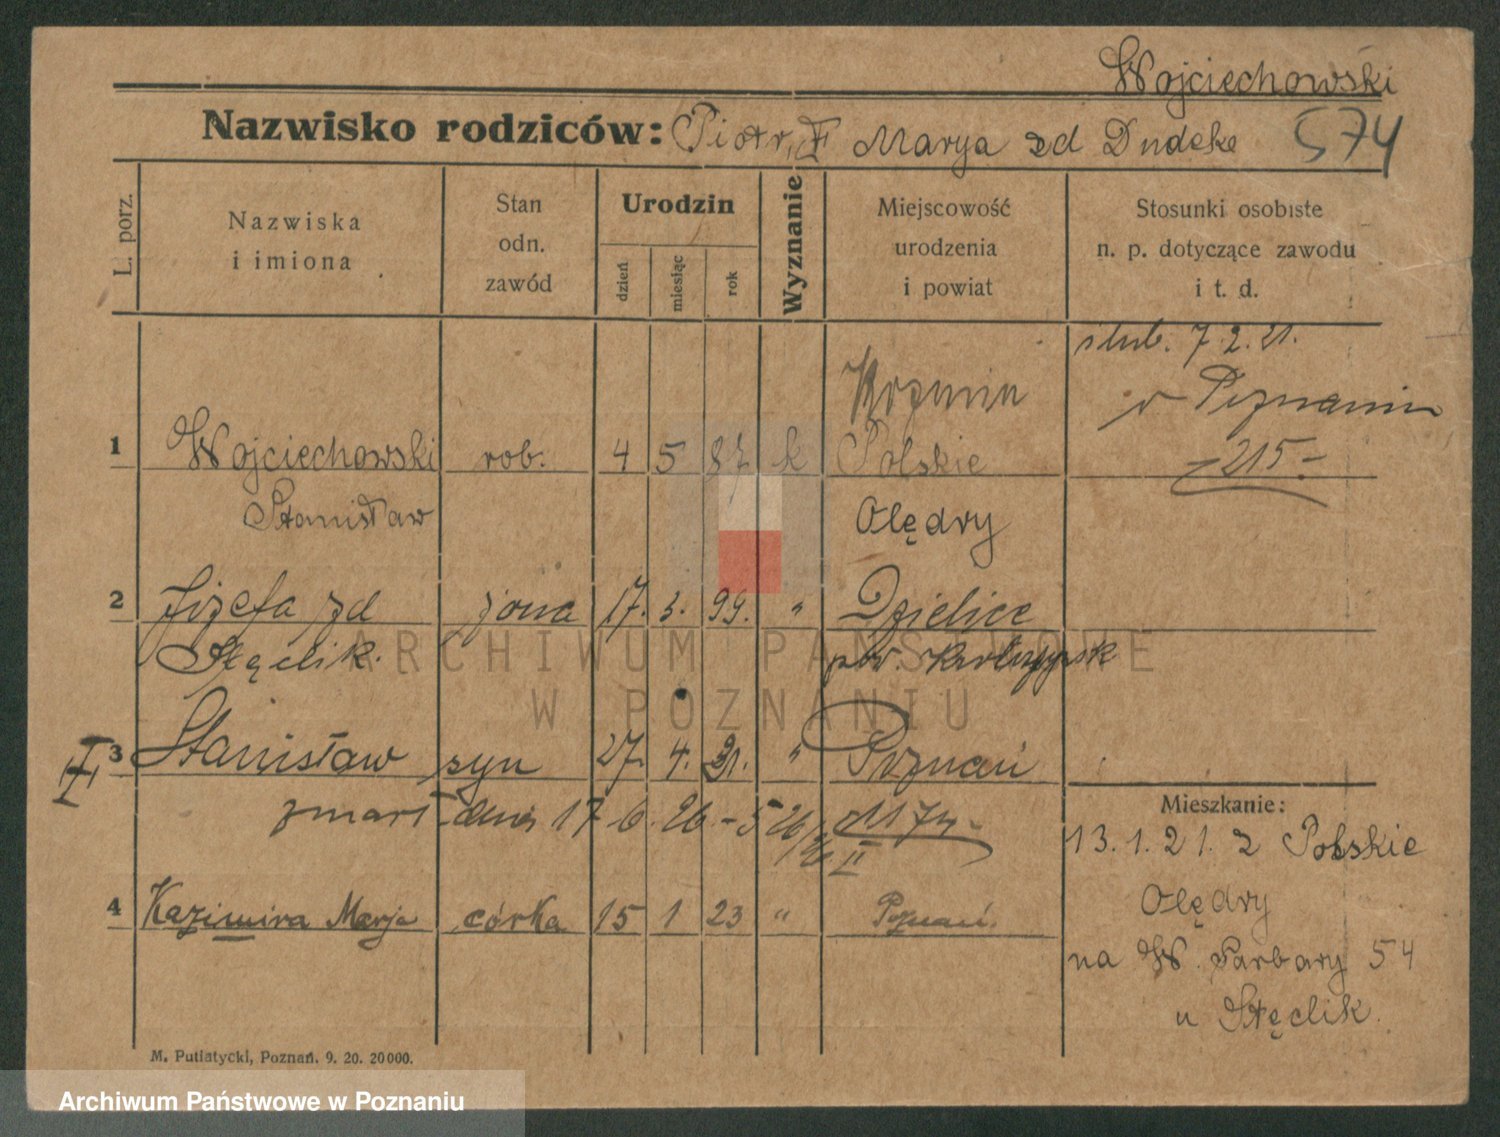 Wojciechowski
Nazwisko rodziców: Piotr, F Marya zd Dudske 574
L. porz.
Nazwiska
i imiona
Stan
odn.
zawód
Urodzin
dzień
miesiąc
rok
Wyznanie
Miejscowość
urodzenia
i powiat
Stosunki osobiste
n. p. dotyczące zawodu
i t. d.
ślub. 7.2.21.
w Poznaniu
-215-
1 Wojciechowski rob. 4 5 87 k Polskie
Stanisław Olędry
2 Józefa zd żona 17. 3. 99. " Dzielice
Stęclik. pow.
3 Stanisław syn 27. 4. 21. " Poznań
zmarł dnia 17 6. 26 - 526/26 II 1174-
4 Kazimira Marja córka 15 1 23 " Poznań.
Mieszkanie:
13.1.21. z Polskie
Olędry
na W. Garbary 54
u Stęclik.
M. Putiatycki, Poznań. 9. 20. 20000.
ARCHIWUM PAŃSTWOWE
W POZNANIU
Archiwum Państwowe w Poznaniu